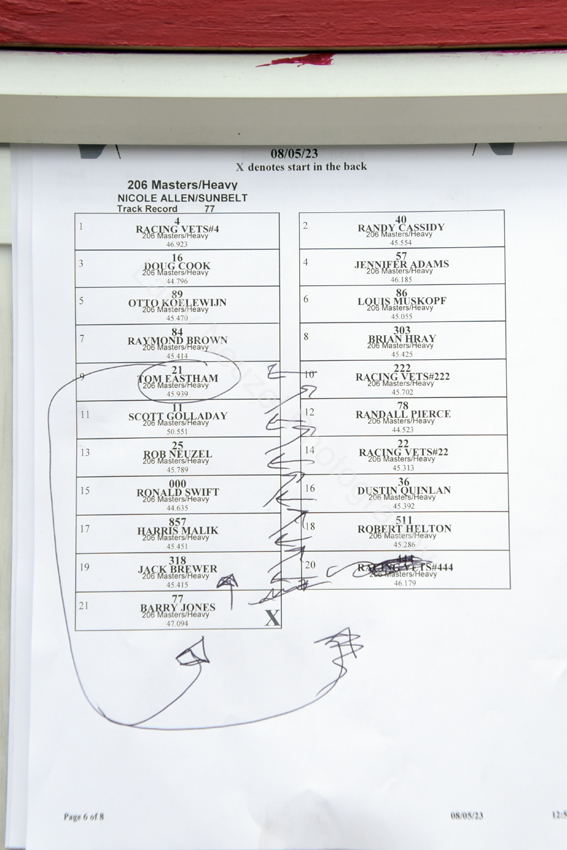 08/05/23
X denotes start in the back
206 Masters/Heavy
NICOLE ALLEN/SUNBELT
Track Record 77
1
4
RACING VETS#4
206 Masters/Heavy
46.923
2
40
RANDY CASSIDY
206 Masters/Heavy
45.554
3
16
DOUG COOK
206 Masters/Heavy
44.796
4
57
JENNIFER ADAMS
206 Masters/Heavy
46.185
5
89
OTTO KOELEWIJN
206 Masters/Heavy
45.470
6
86
LOUIS MUSKOPF
206 Masters/Heavy
45.055
7
84
RAYMOND BROWN
206 Masters/Heavy
45.414
8
303
BRIAN HRAY
206 Masters/Heavy
45.425
9
21
TOM EASTHAM
206 Masters/Heavy
45.939
10
222
RACING VETS#222
206 Masters/Heavy
45.702
11
11
SCOTT GOLLADAY
206 Masters/Heavy
50.551
12
78
RANDALL PIERCE
206 Masters/Heavy
44.523
13
25
ROB NEUZEL
206 Masters/Heavy
45.789
14
22
RACING VETS#22
206 Masters/Heavy
45.313
15
000
RONALD SWIFT
206 Masters/Heavy
44.635
16
36
DUSTIN QUINLAN
206 Masters/Heavy
45.392
17
857
HARRIS MALIK
206 Masters/Heavy
45.451
18
511
ROBERT HELTON
206 Masters/Heavy
45.286
19
318
JACK BREWER
206 Masters/Heavy
45.415
20
444
RACING VETS#444
206 Masters/Heavy
46.179
21
77
BARRY JONES
206 Masters/Heavy
47.094
X
Page 6 of 8
08/05/23
12:5